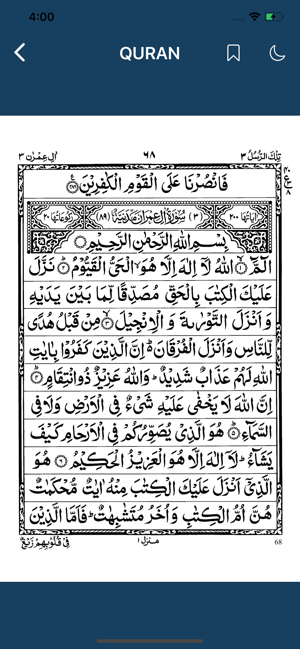 4:00
QURAN
اٰل عِمْرٰن ٣
٦٨
تِلْكَ الرُّسُلُ ٣
فَانْصُرْنَا عَلَى الْقَوْمِ الْكٰفِرِيْنَ
اٰيَاتُهَا ٢٠٠
(٣) سُوْرَةُ اٰلِ عِمْرَانَ مَدَنِيَّةٌ (٨٩)
رُكُوْعَاتُهَا ٢٠
بِسْمِ اللّٰهِ الرَّحْمٰنِ الرَّحِيْمِ
الٓمّٓ ۙ﴿۱﴾ اللّٰهُ لَاۤ اِلٰهَ اِلَّا هُوَ ۙ الْحَيُّ الْقَيُّوْمُ ؕ﴿۲﴾ نَزَّلَ
عَلَيْكَ الْكِتٰبَ بِالْحَقِّ مُصَدِّقًا لِّمَا بَيْنَ يَدَيْهِ
وَ اَنْزَلَ التَّوْرٰىةَ وَ الْاِنْجِيْلَ ۙ﴿۳﴾ مِنْ قَبْلُ هُدًى
لِّلنَّاسِ وَاَنْزَلَ الْفُرْقَانَ ؕ اِنَّ الَّذِيْنَ كَفَرُوْا بِاٰيٰتِ
اللّٰهِ لَهُمْ عَذَابٌ شَدِيْدٌ ؕ وَاللّٰهُ عَزِيْزٌ ذُو انْتِقَامٍ ﴿۴﴾
اِنَّ اللّٰهَ لَا يَخْفٰى عَلَيْهِ شَيْءٌ فِي الْاَرْضِ وَلَا فِي
السَّمَآءِ ؕ﴿۵﴾ هُوَ الَّذِيْ يُصَوِّرُكُمْ فِي الْاَرْحَامِ كَيْفَ
يَشَآءُ ؕ لَاۤ اِلٰهَ اِلَّا هُوَ الْعَزِيْزُ الْحَكِيْمُ ﴿۶﴾ هُوَ
الَّذِيْۤ اَنْزَلَ عَلَيْكَ الْكِتٰبَ مِنْهُ اٰيٰتٌ مُّحْكَمٰتٌ
هُنَّ اُمُّ الْكِتٰبِ وَ اُخَرُ مُتَشٰبِهٰتٌ ؕ فَاَمَّا الَّذِيْنَ
فِيْ قُلُوْبِهِمْ زَيْغٌ
منزل ١
68